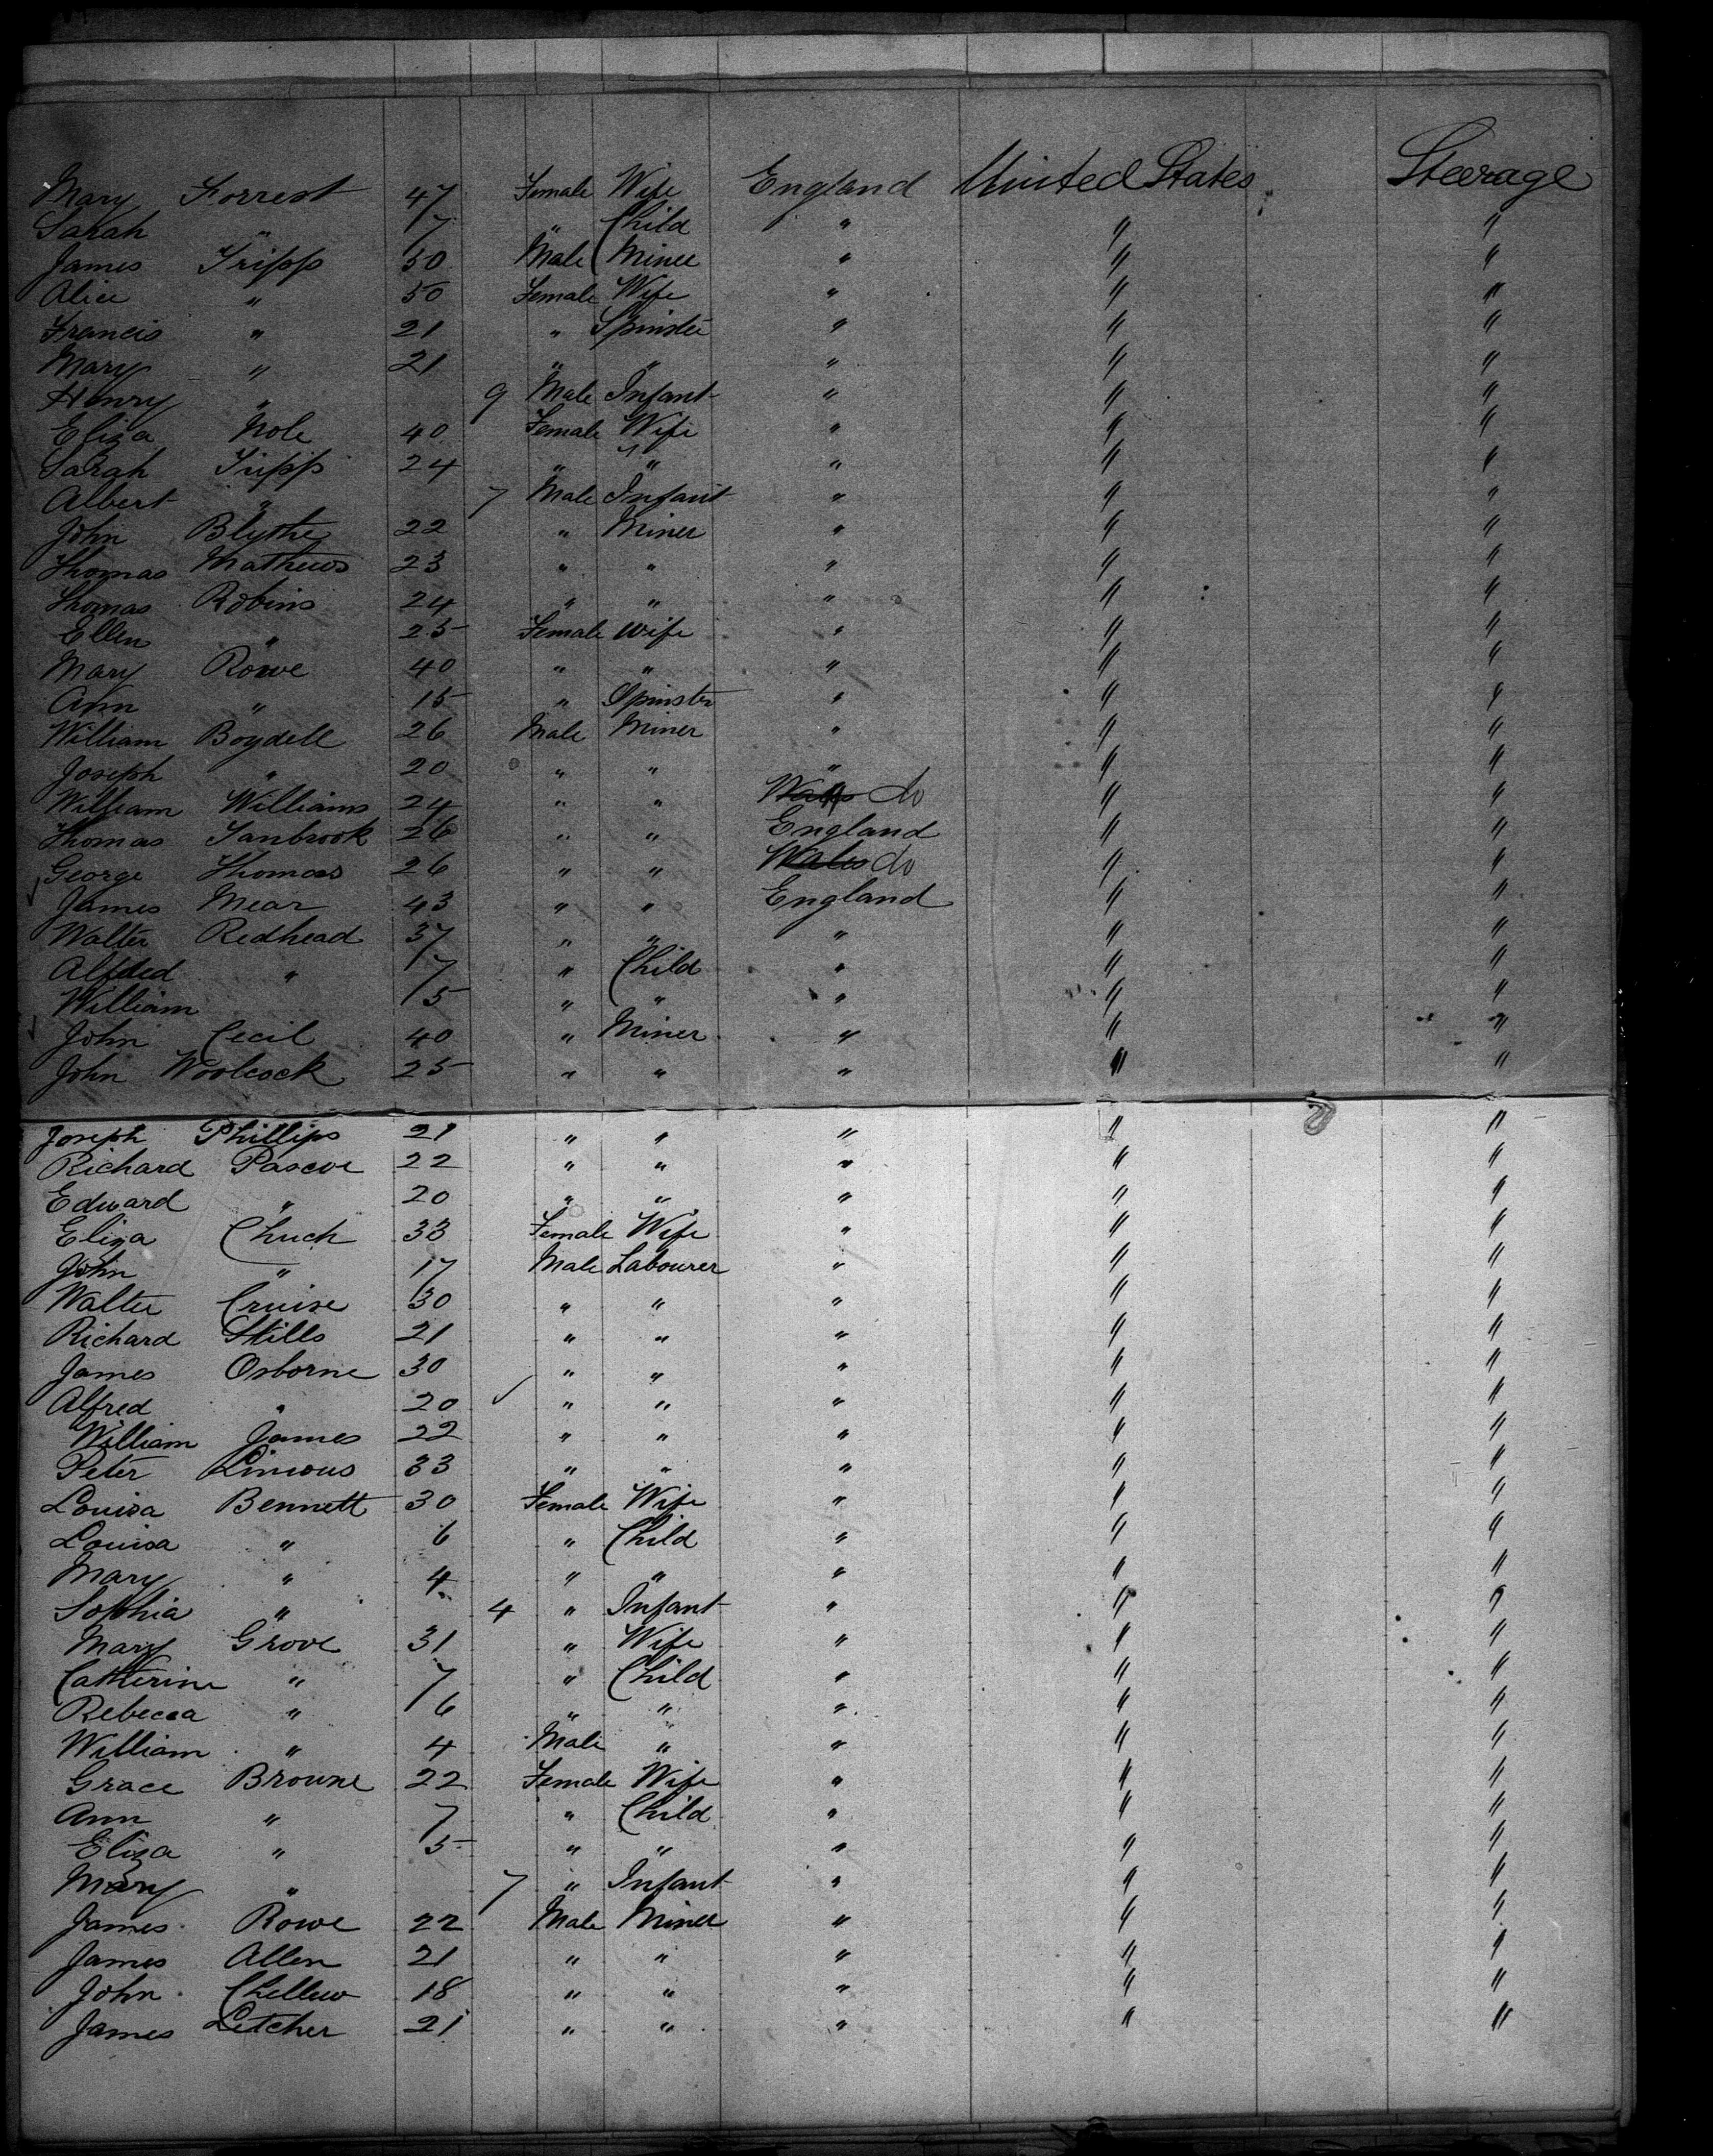 Mary Forrest 47 Female Wife England United States Steerage
Sarah " 7 " Child " " "
James Tripp 50 Male Miner " " "
Alice " 50 Female Wife " " "
Francis " 21 " Spinster " " "
Mary " 21 " " " " "
Henry " 9 Male Infant " " "
Eliza Nole 40 Female Wife " " "
Sarah Tripp 24 " " " " "
Albert " 7 Male Infant " " "
John Blythe 22 " Miner " " "
Thomas Mathews 23 " " " " "
Thomas Robins 24 " " " " "
Ellen " 25 Female Wife " " "
Mary Rowe 40 " " " " "
Ann " 15 " Spinster " " "
William Boydell 26 Male Miner " " "
Joseph " 20 " " " " "
William Williams 24 " " Wales do " "
Thomas Tanbrook 26 " " England " "
George Thomas 26 " " Wales do " "
James Mear 43 " " England " "
Walter Redhead 37 " " " " "
Alfded " 7 " Child " " "
William 5 " " " " "
John Cecil 40 " Miner " " "
John Woolcock 25 " " " " "
Joseph Phillips 21 " " " " "
Richard Pascoe 22 " " " " "
Edward " 20 " " " " "
Eliza Chuch 33 Female Wife " " "
John " 17 Male Labourer " " "
Walter Cruise 30 " " " " "
Richard Stills 21 " " " " "
James Osborne 30 " " " " "
Alfred " 20 " " " " "
William James 22 " " " " "
Peter 33 " " " " "
Louisa Bennett 30 Female Wife " " "
Louisa " 6 " Child " " "
Mary " 4 " " " " "
Sophia " 4 " Infant " " "
Mary Grove 31 " Wife " " "
Catherine " 7 " Child " " "
Rebecca " 6 " " " " "
William " 4 Male " " " "
Grace Browne 22 Female Wife " " "
Ann " 7 " Child " " "
Eliza " 5 " " " " "
Mary " 7 " Infant " " "
James Rowe 22 Male Miner " " "
James Allen 21 " " " " "
John Chellew 18 " " " " "
James Letcher 21 " " " " "